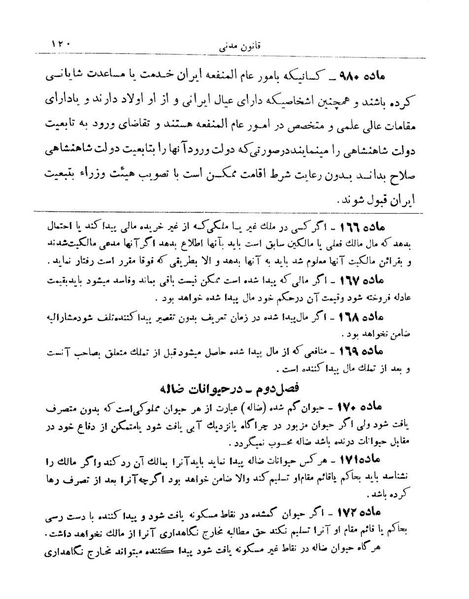 قانون مدنی
۱۲۰
ماده ۹۸۰ ـ کسانیکه بامور عام المنفعه ایران خدمت یا مساعدت شایانی
کرده باشند و همچنین اشخاصیکه دارای عیال ایرانی و از او اولاد دارند و یادارای
مقامات عالی علمی و متخصص در امور عام المنفعه هستند و تقاضای ورود به تابعیت
دولت شاهنشاهی را مینمایند درصورتی‌که دولت ورود آنها را بتابعیت دولت شاهنشاهی
صلاح بداند بدون رعایت شرط اقامت ممکن است با تصویب هیئت وزراء بتبعیت
ایران قبول شوند.
ماده ۱۶۶ - اگر کسی در ملك غیر یا ملکی که از غیر خریده مالی پیدا کند یا احتمال
بدهد که مال مالك فعلی یا مالکین سابق است باید بآنها اطلاع بدهد اگر آنها مدعی مالکیت‌شدند
و بقرائن مالکیت آنها معلوم شد باید به آنها بدهد و الا بطریقی که فوقا مقرر است رفتار نماید .
ماده ۱۶۷ - اگر مالی که پیدا شده است ممکن نیست باقی بماند وفاسد میشود باید بقیمت
عادله فروخته شود وقیمت آن درحکم خود مال پیدا شده خواهد بود .
ماده ۱۶۸ - اگر مال پیدا شده در زمان تعریف بدون تقصیر پیدا کننده تلف شود مشارالیه
ضامن نخواهد بود .
ماده ۱۶۹ - منافعی که از مال پیدا شده حاصل میشود قبل از تملك متعلق بصاحب آنست
و بعد از تملك مال پیدا کننده است .
فصل دوم - در حیوانات ضاله
ماده ۱۷۰ - حیوان گم شده (ضاله) عبارت از هر حیوان مملوکی است که بدون متصرف
یافت شود ولی اگر حیوان مزبور در چراگاه یا نزدیك آبی یافت شود یا متمکن از دفاع خود در
مقابل حیوانات درنده باشد ضاله محسوب نمیگردد .
ماده ۱۷۱ - هرکس حیوانات ضاله پیدا نماید باید آنرا بمالك آن رد کند واگر مالك را
نشناسد باید بحاکم یا قائم مقام او تسلیم کند والا ضامن خواهد بود اگرچه آنرا بعد از تصرف رها
کرده باشد .
ماده ۱۷۲ - اگر حیوان گمشده در نقاط مسکونه یافت شود و پیدا کننده با دست رسی
بحاکم یا قائم مقام او آنرا تسلیم نکند حق مطالبه مخارج نگاهداری آنرا از مالك نخواهد داشت .
هرگاه حیوان ضاله در نقاط غیر مسکونه یافت شود پیدا کننده میتواند مخارج نگاهداری